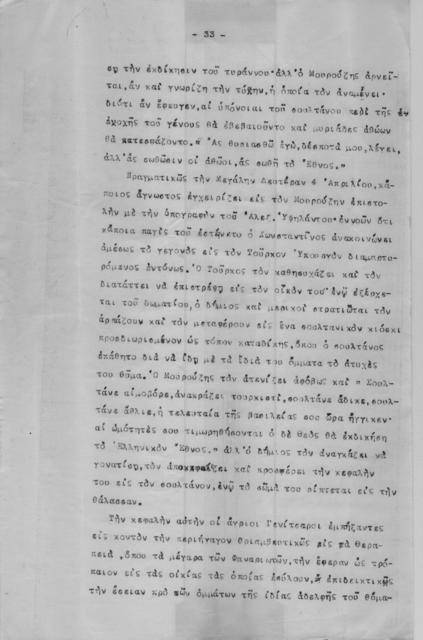 - 33 -
σῃ τὴν ἐκδίκησιν τοῦ τυράννου·ἀλλ'ὁ Μουρούζης ἀρνεῖ-
ται,ἂν καὶ γνωρίζῃ τὴν τύχην,ἡ ὁποία τὸν ἀναμένει·
διότι ἂν ἔφευγεν,αἱ ὑπόνοιαι τοῦ σουλτάνου περὶ τῆς ἐν
ἐχοχῆς τοῦ γένους θὰ ἐβεβαιοῦντο καὶ μυριάδες ἀθώων
θὰ κατεσφάζοντο." Ἂς θυσιασθῶ ἐγώ,δέσποτά μου,λέγει,
ἀλλ'ἂς σωθῶσιν οἱ ἀθῶοι,ἂς σωθῇ τὸ Ἔθνος."
Πραγματικῶς τὴν Μεγάλην Δευτέραν 4 Ἀπριλίου,κά-
ποιος ἄγνωστος ἐγχειρίζει εἰς τὸν Μουρούζην ἐπιστο-
λὴν μὲ τὴν ὑπογραφὴν τοῦ Ἀλεξ.Ὑψηλάντου·ἐννοῶν ὅτι
κάποια παγὶς τοῦ ἐστήνετο ὁ Κωνσταντῖνος ἀνακοινώνει
ἀμέσως τὸ γεγονὸς εἰς τὸν Τοῦρκον Ὑπουργὸν διαμαρτυ-
ρόμενος ἐντόνως.Ὁ Τοῦρκος τὸν καθησυχάζει καὶ τὸν
διατάττει νὰ ἐπιστρέψῃ εἰς τὸν οἶκόν του·ἐνῷ ἐξέρχε-
ται τοῦ δωματίου,ὁ δήμιος καὶ μερικοὶ στρατιῶται τὸν
ἁρπάζουν καὶ τὸν μεταφέρουν εἰς ἕνα σουλτανικὸν κιόσκι
προσδιωρισμένον ὡς τόπον καταδίκης,ὅπου ὁ σουλτάνος
ἐκάθητο διὰ νὰ ἴδῃ μὲ τὰ ἴδιά του ὄμματα τὸ ἀτυχὲς
του θῦμα.Ὁ Μουρούζης τὸν ἀτενίζει ἀφόβως καὶ " Σουλ-
τάνε αἱμοβόρε,ἀνακράζει τουρκιστί,σουλτάνε ἄδικε,σουλ-
τάνε ἄθλιε,ἡ τελευταία τῆς βασιλείας σου ὥρα ἤγγικεν·
αἱ ὠμότητές σου τιμωρηθήσονται ὁ δὲ θεὸς θὰ ἐκδικήσῃ
τὸ Ἑλληνικὸν Ἔθνος." ἀλλ'ὁ δήμιος τὸν ἀναγκάζει νὰ
γονατίσῃ,τὸν ἀποκεφαλίζει καὶ προσφέρει τὴν κεφαλὴν
του εἰς τὸν σουλτάνον,ἐνῷ τὸ σῶμά του ρίπτεται εἰς τὴν
θάλασσαν.
Τὴν κεφαλὴν αὐτὴν οἱ ἄγριοι Γενίτσαροι ἐμπήξαντες
εἰς κοντὸν τὴν περιήγαγον θριαμβευτικῶς εἰς τὰ Θερα-
πειά ,ὅπου τὰ μέγαρα τῶν Φαναριωτῶν,τὴν ἔφεραν ὡς τρό-
παιον εἰς τὰς οἰκίας τὰς ὁποίας ἐσύλουν, ἐπιδεικτικῶς
τὴν ἔσειαν πρὸ τῶν ὀμμάτων τῆς ἰδίας ἀδελφῆς τοῦ θύμα-